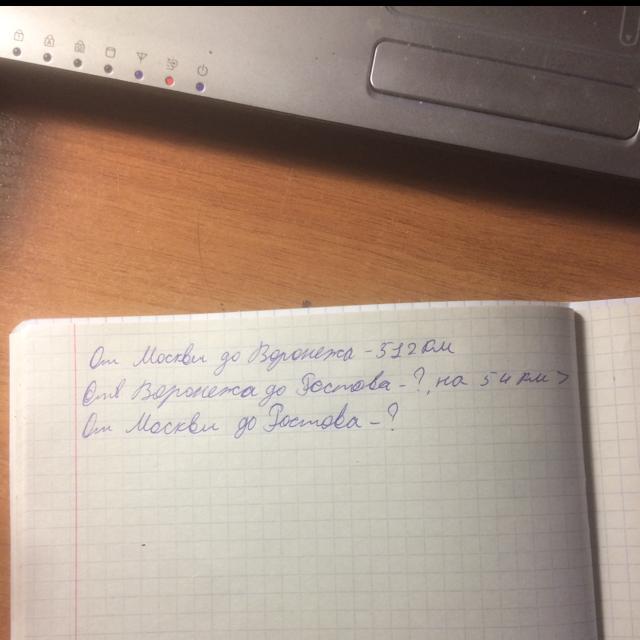 От Москвы до Воронежа - 512 км
От Воронежа до Ростова - ?, на 54 км >
От Москвы до Ростова - ?